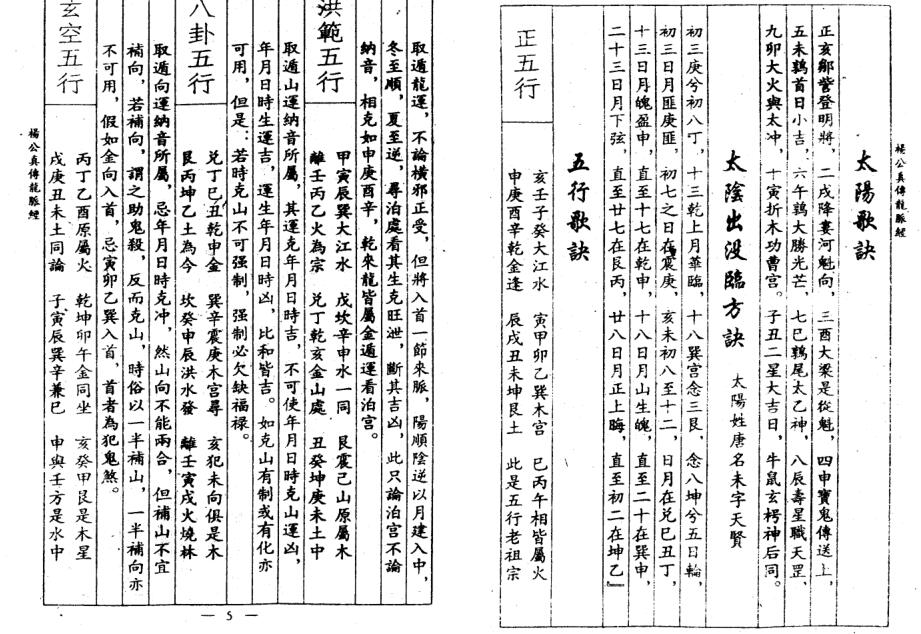 楊公真傳龍脈經
太陽歌訣
正亥鄒訾登明將,二戌降婁河魁向,三酉大梁是從魁,四申實鬼傳送上,
五未鶉首日小吉,六午鶉大勝光芒,七巳鶉尾太乙神,八辰壽星職天罡,
九卯大火與太冲,十寅折木功曹宮。子丑二星大吉日,牛鼠玄枵神后同。
太陰出沒臨方訣 太陽姓唐名未字天賢
初三庚兮初八丁,十三乾上月華臨,十八巽宮念三艮,念八坤兮五日輪,
初三日月匪庚匪,初七之日在震庚,亥未初八至十二,日月在兌巳丑丁,
十三日月魄盈申,直至十七在乾申,十八日月山生魄,直至二十在巽申,
二十三日月下弦,直至廿七在艮丙,廿八日月正上晦,直至初二在坤乙』
五行歌訣
正五行
亥壬子癸大江水 寅甲卯乙巽木宮 巳丙午相皆屬火
申庚酉辛乾金逢 辰戌丑未坤艮土 此是五行老祖宗
取遁龍運,不論橫邪正受,但將入首一節來脈,陽順陰逆以月建入中,
冬至順,夏至逆,尋泊處看其生克旺泄,斷其吉凶,此只論泊宮不論
納音,相克如申庚酉辛,乾來龍皆屬金遁運看泊宮。
洪範五行
甲寅辰巽大江水 戊坎辛申水一同 艮震己山原屬木
離壬丙乙火為宗 兌丁乾亥金山處 丑癸坤庚未土中
取遁山運納音所屬,其運克年月日時吉,不可使年月日時克山運凶,
年月日時生運吉,運生年月日時凶,比和皆吉。如克山有制或有化亦
可用,但是:若時克山不可强制,强制必欠缺福祿。
八卦五行
兌丁巳丑乾申金 巽辛震庚木宮尋 亥犯未向俱是木
艮丙坤乙土為今 坎癸申辰洪水發 離壬寅戌火燒林
取遁向運納音所屬,忌年月日時克冲,然山向不能兩合,但補山不宜
補向,若補向,謂之助鬼殺,反而克山,時俗以一半補山,一半補向亦
不可用,假如金向入首,忌寅卯乙巽入首,首者為犯鬼煞。
玄空五行
丙丁乙酉原屬火 乾坤卯午金同坐 亥癸甲艮是木星
戌庚丑未土同論 子寅辰巽辛兼巳 申與壬方是水中
楊公真傳龍脈經
— 5 —